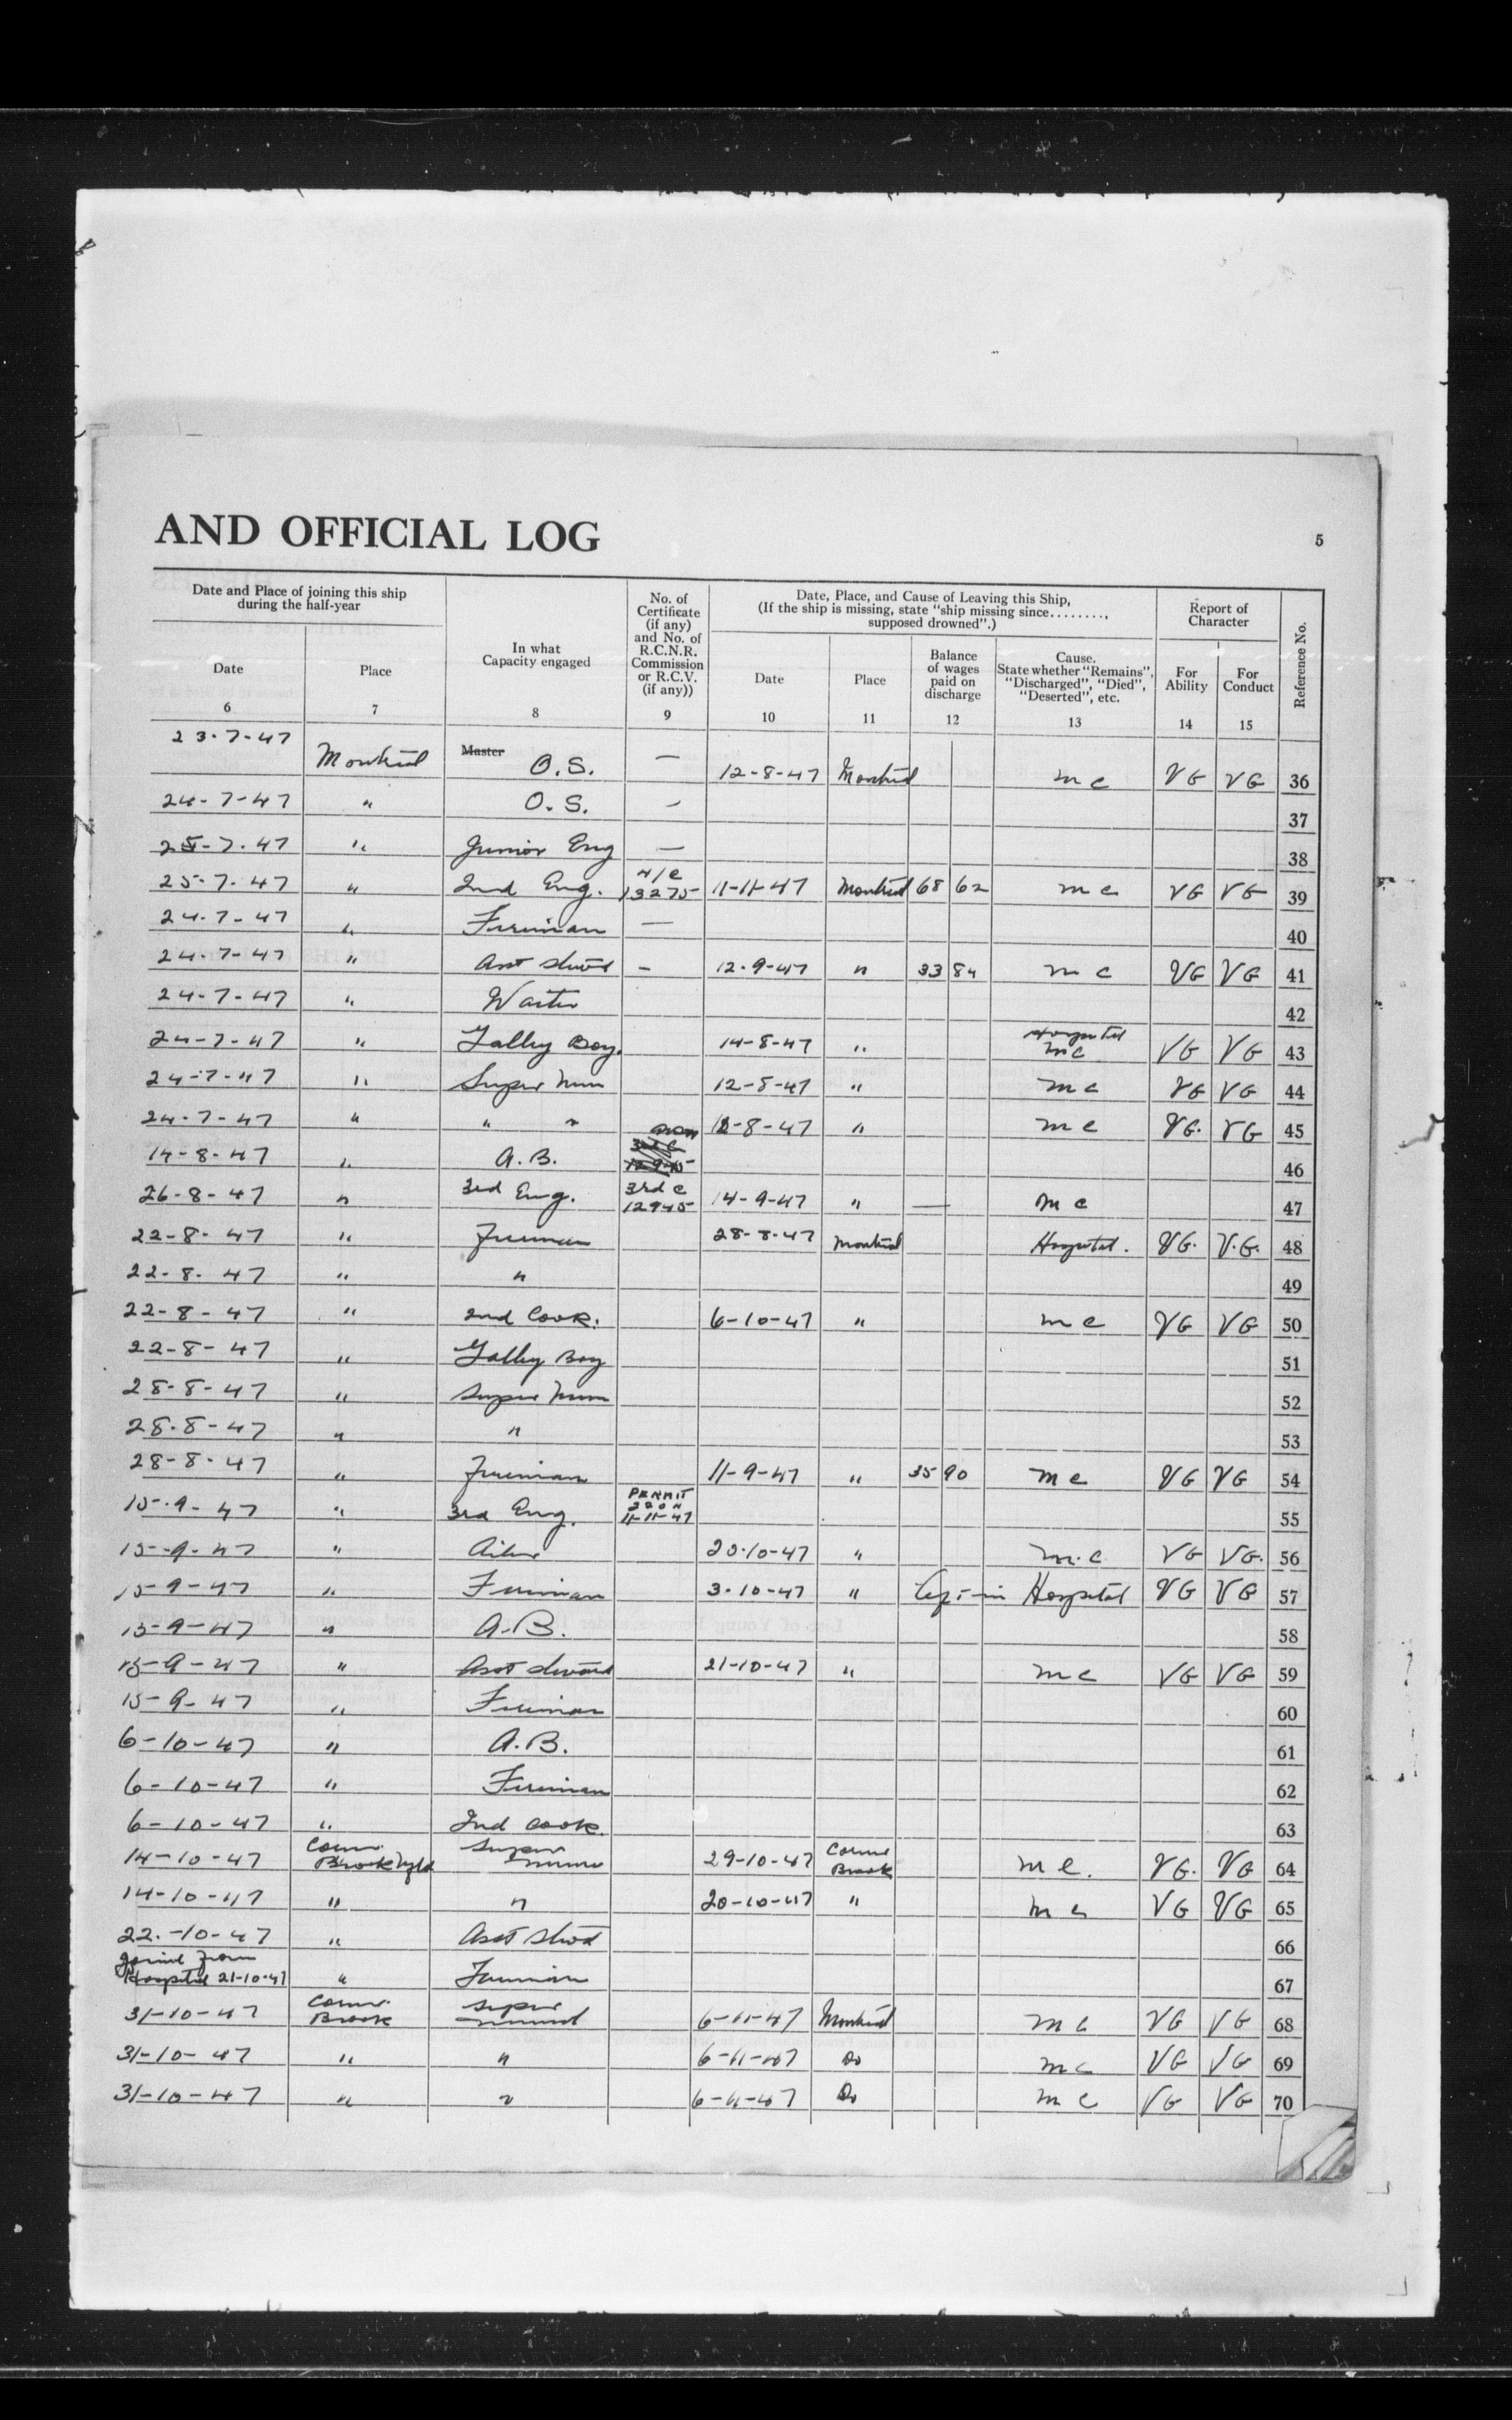 AND OFFICIAL LOG
5
Date and Place of joining this ship during the half-year
In what Capacity engaged
No. of Certificate (if any) and No. of R.C.N.R. Commission or R.C.V. (if any))
Date, Place, and Cause of Leaving this Ship,
(If the ship is missing, state "ship missing since........, supposed drowned".)
Report of Character
Reference No.
Date
Place
Date
Place
Balance of wages paid on discharge
Cause. State whether "Remains", "Discharged", "Died", "Deserted", etc.
For Ability
For Conduct
6 7 8 9 10 11 12 13 14 15
23-7-47 Montreal Master O.S. — 12-8-47 Montreal M C VG VG 36
24-7-47 " O.S. — 37
25-7-47 " Junior Eng — 38
25-7-47 " 2nd Eng. 13275 11-11-47 Montreal 68 62 M C VG VG 39
24-7-47 " Fireman — 40
24-7-47 " Asst Stwd — 12-9-47 " 33 84 M C VG VG 41
24-7-47 " Waiter 42
24-7-47 " Galley Boy. 14-8-47 " Hospital M C VG VG 43
24-7-47 " Super Num 12-8-47 " M C VG VG 44
24-7-47 " " " 12-8-47 " M C VG. VG 45
14-8-47 " A.B. 46
26-8-47 " 3rd Eng. 3rd C 12945 14-9-47 " — M C 47
22-8-47 " Fireman 28-8-47 Montreal Hospital. VG. V.G. 48
22-8-47 " " 49
22-8-47 " 2nd Cook. 6-10-47 " M C VG VG 50
22-8-47 " Galley Boy 51
28-8-47 " Super Num 52
28-8-47 " " 53
28-8-47 " Fireman 11-9-47 " 35 90 M C VG VG 54
15-9-47 " 3rd Eng. PERMIT 11-11-47 55
15-9-47 " Oiler 20-10-47 " M.C VG VG. 56
15-9-47 " Fireman 3-10-47 " in Hospital VG VG 57
15-9-47 " A.B. 58
15-9-47 " Asst Steward 21-10-47 " M C VG VG 59
15-9-47 " Fireman 60
6-10-47 " A.B. 61
6-10-47 " Fireman 62
6-10-47 " 2nd Cook. 63
14-10-47 Corner Brook Nfld Super Num 29-10-47 Corner Brook M C. VG. VG 64
14-10-47 " " 20-10-47 " M C VG VG 65
22-10-47 " Asst Stwd 66
Joined from Hospital 21-10-47 " Fireman 67
31-10-47 Corner Brook Super 6-11-47 Montreal M C VG VG 68
31-10-47 " " 6-11-47 Do M C VG VG 69
31-10-47 " " 6-11-47 Do M C VG VG 70